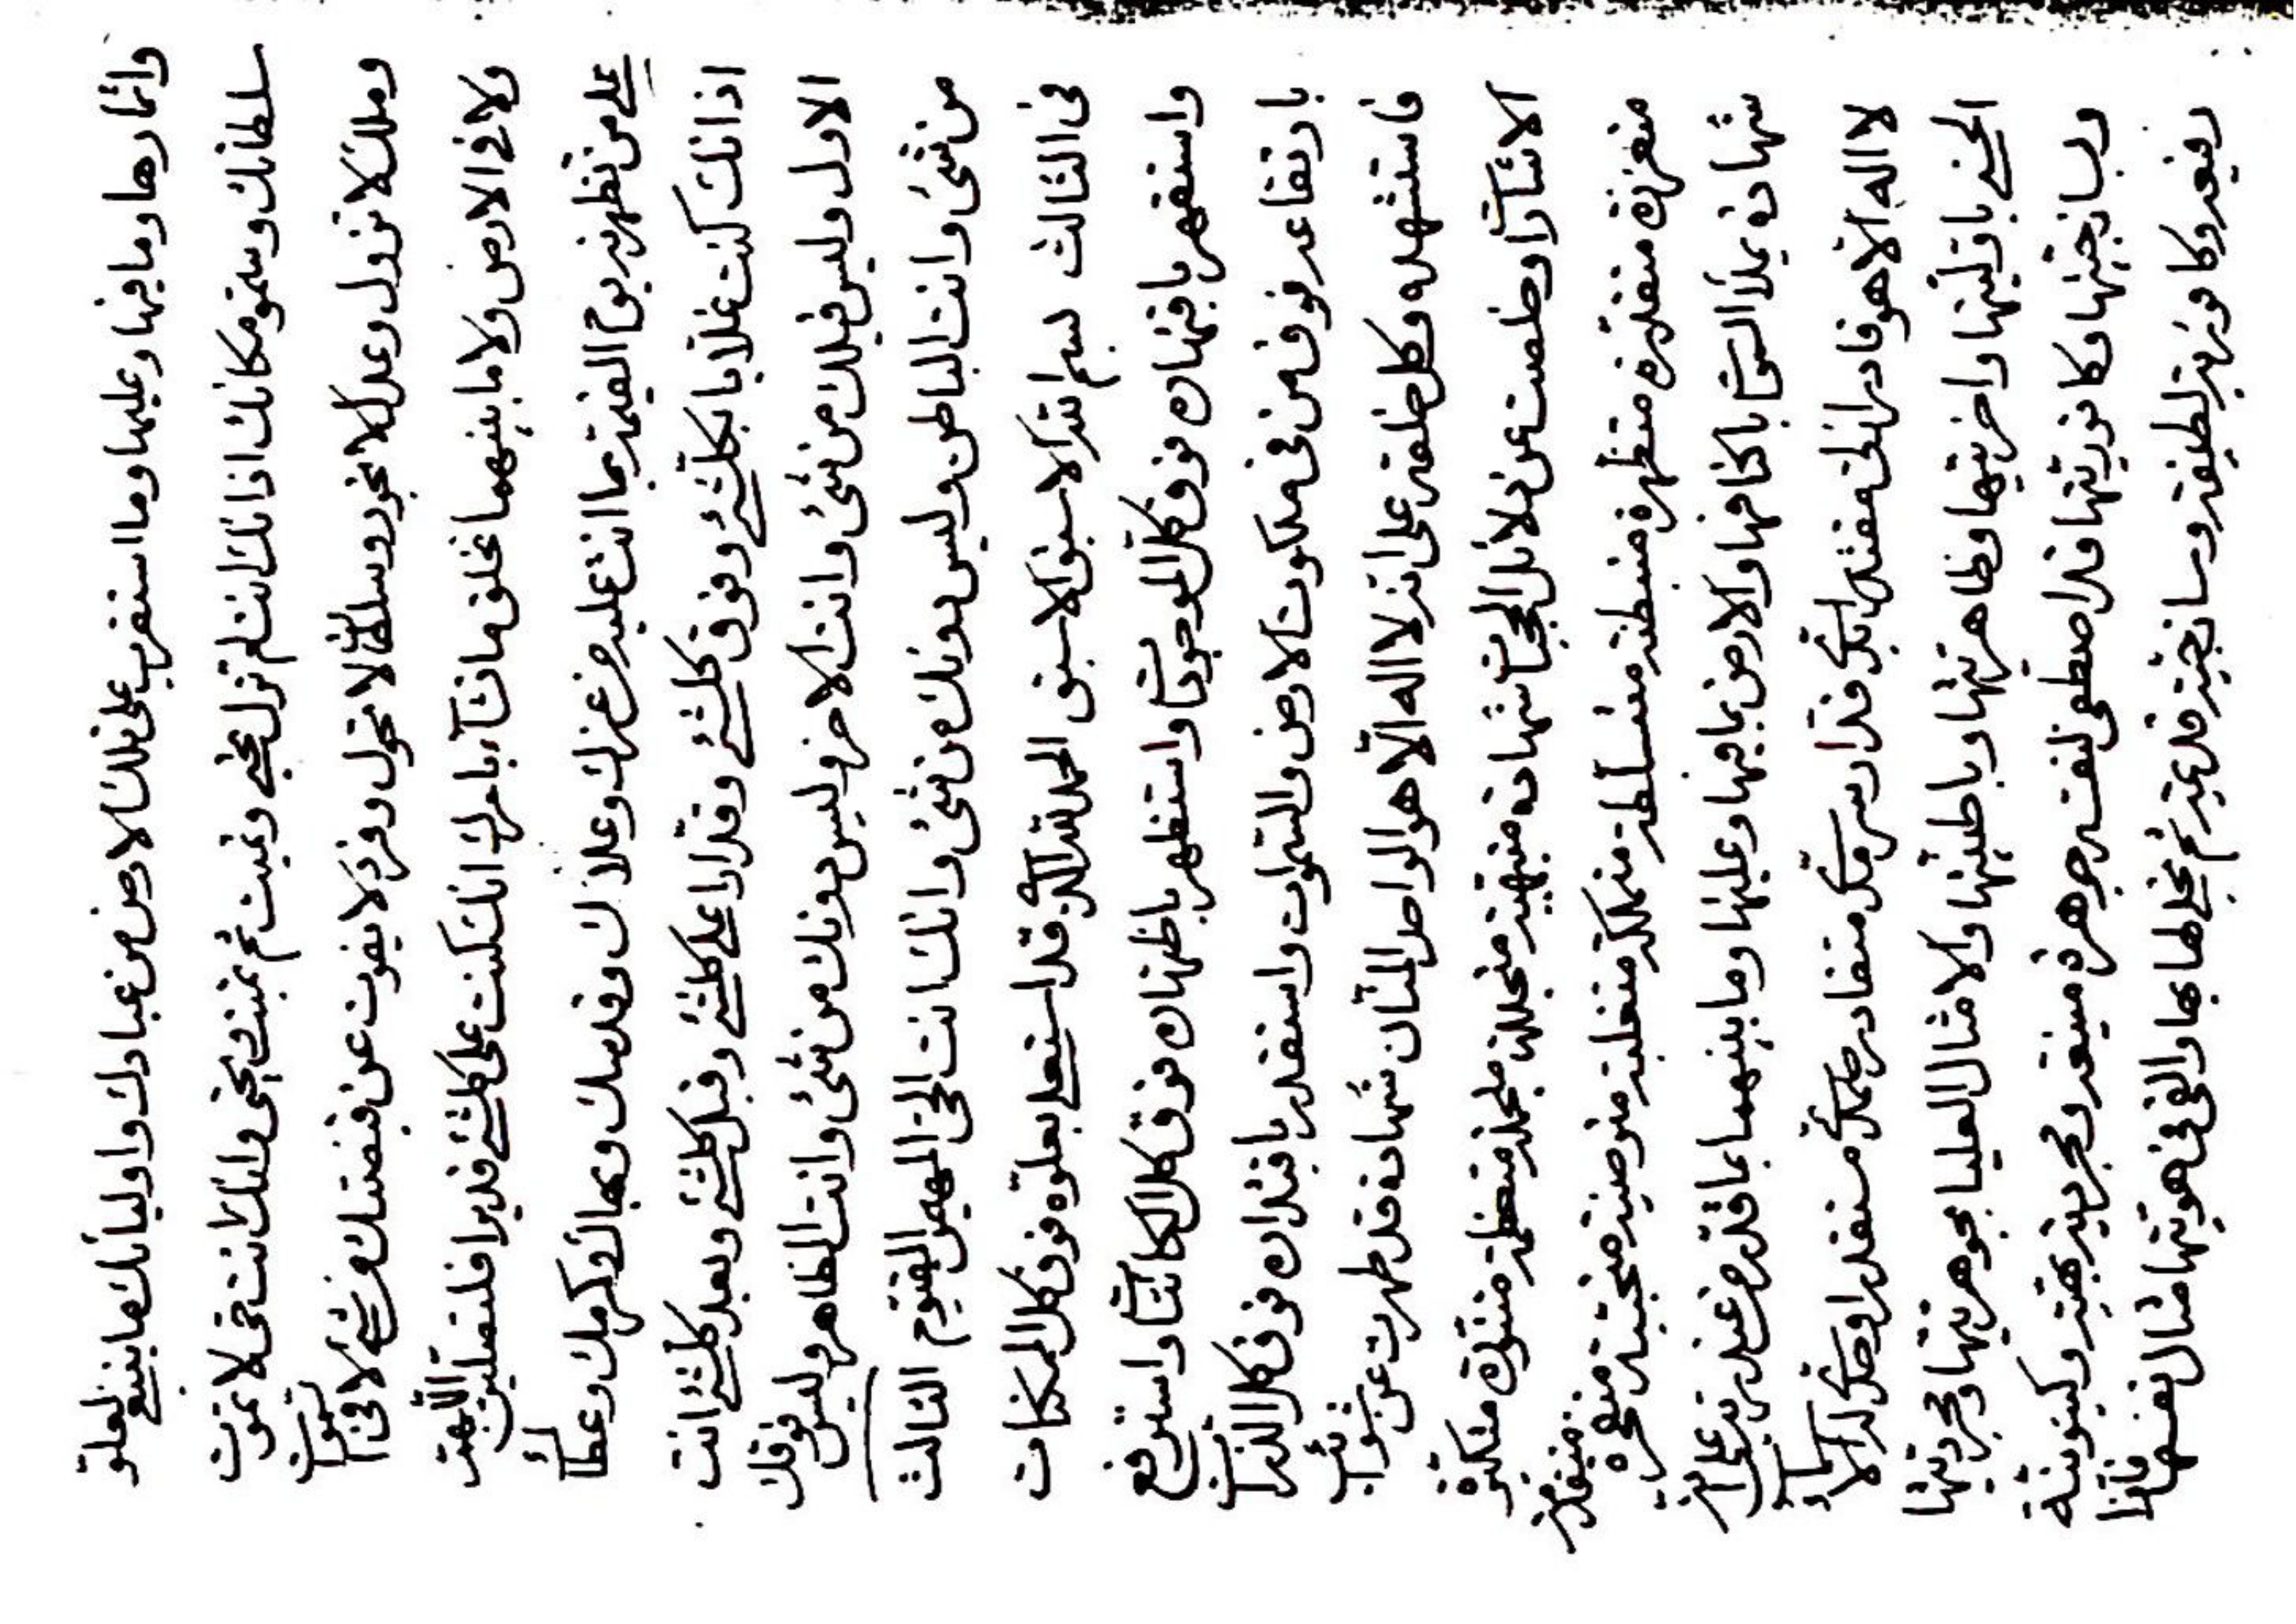 واثمارها وما فيها وعليها وما استقرب على تلك الارض من عبادك واوليائك ما ينبغي لعلو
سلطانك وسمو مكانك اذ انك انت لم تزل تحيي وتميت ثم تميت وتحيي وانك انت حي لا تموت
وملك لا تزول وعدل لا تجور وسلطان لا تحول وفرد لا يفوت عن قبضتك من شئ لا في السموات
ولا في الارض ولا ما بينهما تخلق ما تشآء بامرك انك كنت على كلشئ قديرا فلتصلين اللهم
على من تظهرنه يوم القيمة بما انت عليه من عزك وعلاك وقدسك وبهائك وكرمك وعطائك
اذ انك كنت علاما بكلشئ وفوق كلشئ وقدارا على كلشئ وقبل كلشئ وبعد كلشئ انت
الاول وليس قبلك من شئ وانت الاخر وليس دونك من شئ وانت الظاهر وليس فوقك
من شئ وانت الباطن وليس دونك من شئ وانك انت الحي المهيمن القيوم الثالث
في الثالث بسم الله الاسبق الاسبق الحمد لله الذي قد استعلى بعلوه فوق كل الممكنات
واستقهر باقتهاره فوق كل الموجودات واستظهر باظتهاره فوق كل الكائنات واسترفع
بارتفاعه فوق من في ملكوت الارض والسموات واستقدر باقتداره فوق كل الذرات
فاستشهده وكل خلقه على انه لا اله الا هو الواحد المنان شهادة قد طهرت عن شوائب
الاشارات وخلصت عن دلائل شهادة متبهية متجللة متجملة متعظمة متنورة متكبرة
متعززة متقدرة متظهرة متبطنة متسلطة متملكة متغلبة متحببة
شهادة يملأ السموات باكنافها والارض بما فيها وعليها وما بينهما بما قدر من عنده على انه
لا اله الا هو له الاسماء
الحسنى باوليتها واخريتها وظاهريتها وباطنيتها والامثال العليا بجوهريتها ومجرديتها
وساذجيتها وكافوريتها قد اصطفى لنفسه جوهرة منيعة ومجردية بهية وكينونية
رفيعة وكافورية لطيفة وساذجية قديمة ثم تجلى لها بها والقى في هويتها مثال نفسها